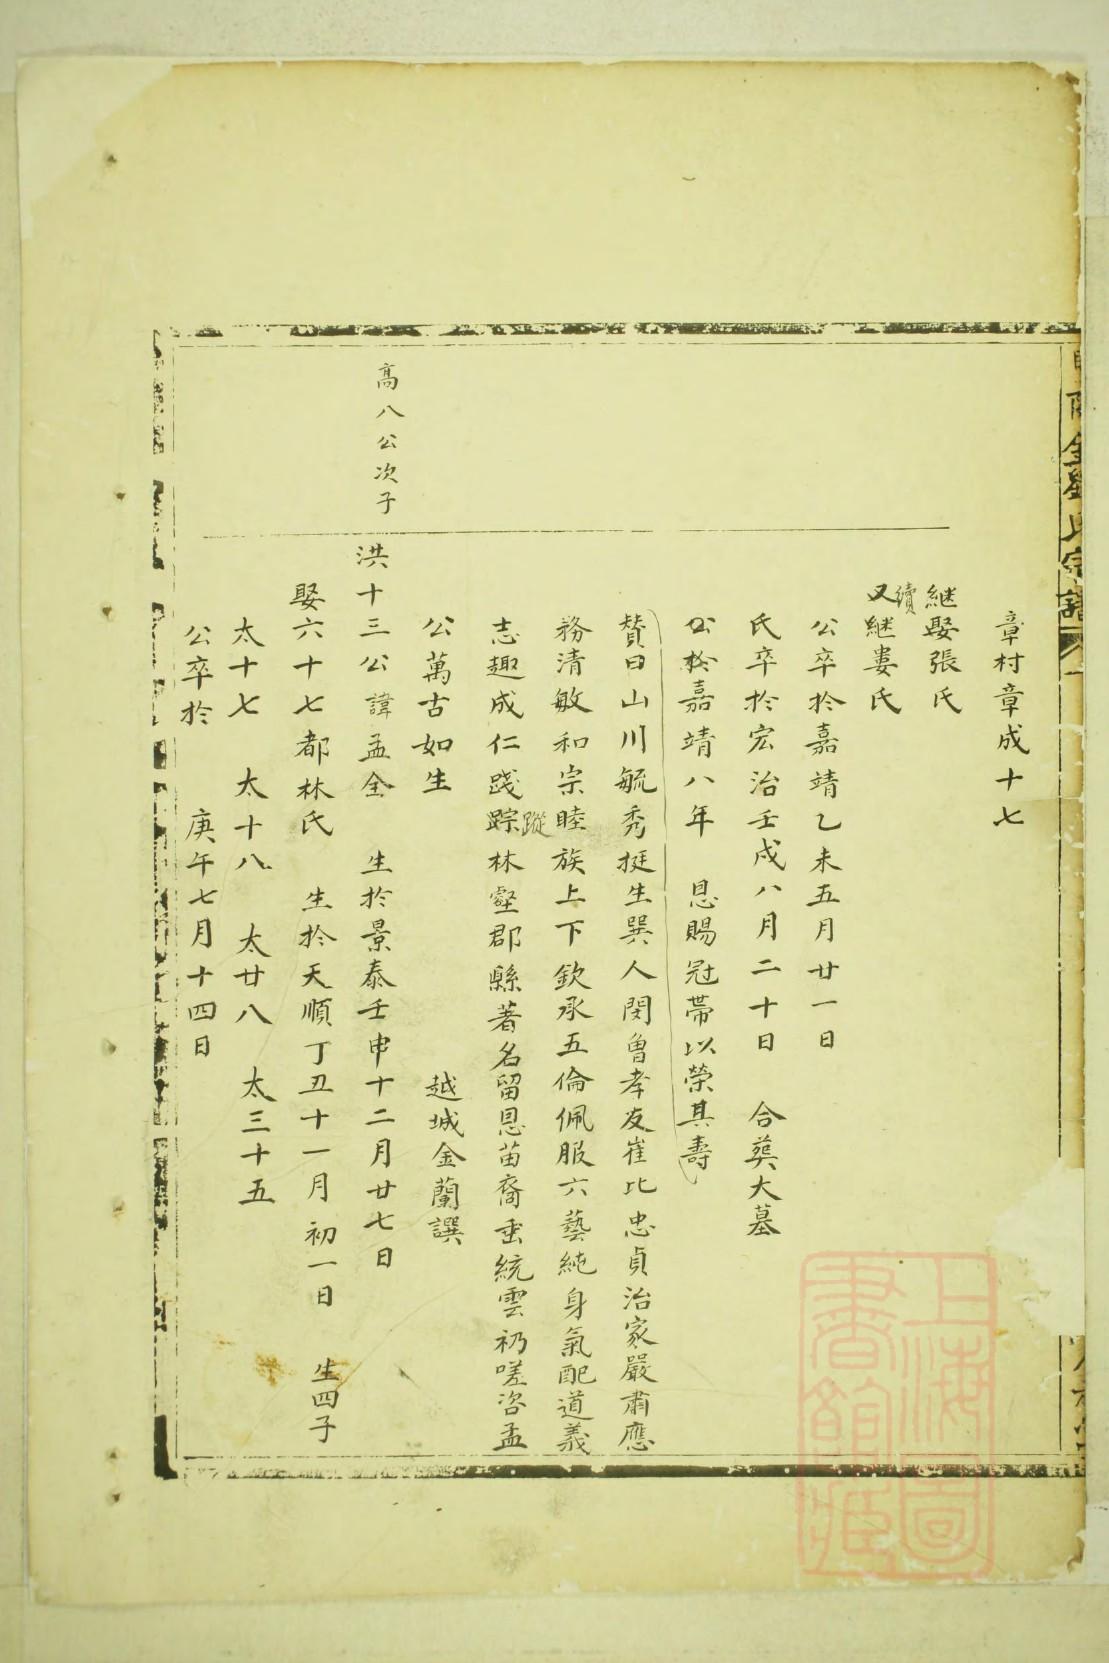 金劉氏宗譜
章村章成十七
継娶張氏
又續継婁氏
公卒扵嘉靖乙未五月廿一日
氏卒扵宏治壬戌八月二十日 合葬大墓
公扵嘉靖八年 恩賜冠帶以榮其壽
贊曰山川毓秀挺生巽人閔曾孝友崔比忠貞治家嚴肅應
務清敏和宗睦族上下欽承五倫佩服六藝純身氣配道義
志趣成仁踐踪蹤林壑郡縣著名留恩苗裔垂統雲礽嗟咨孟
公萬古如生 越城金蘭譔
高八公次子
洪十三公諱孟全 生扵景泰壬申十二月廿七日
娶六十七都林氏 生扵天順丁丑十一月初一日 生四子
太十七 太十八 太廿八 太三十五
公卒扵 庚午七月十四日
上海圖書館藏